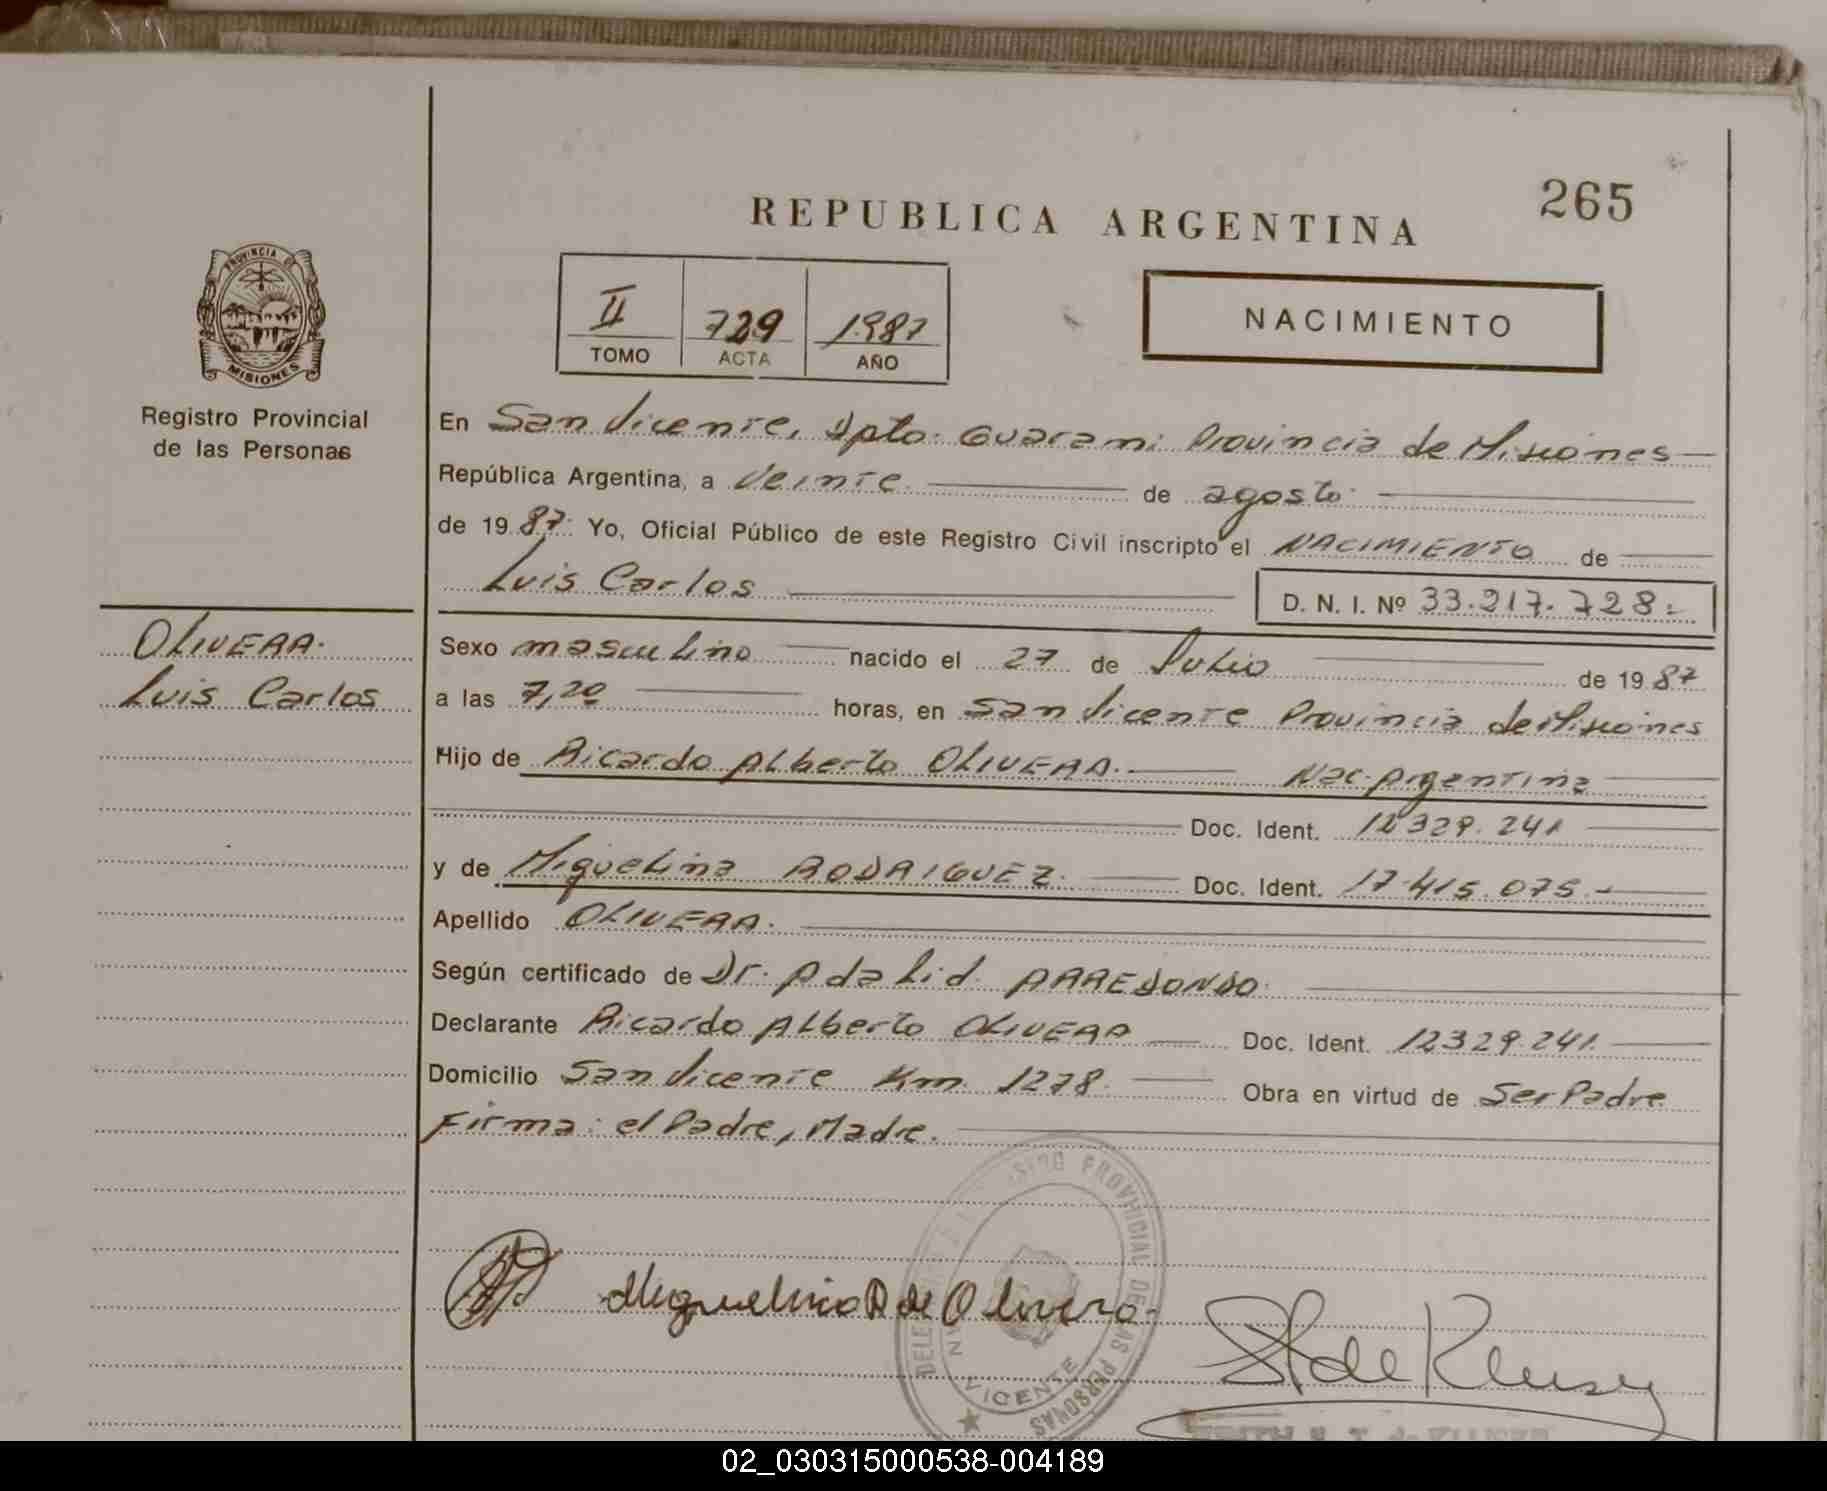 265
REPUBLICA ARGENTINA
PROVINCIA DE
MISIONES
Registro Provincial
de las Personas
II 729 1987
TOMO ACTA AÑO
NACIMIENTO
En San Vicente, Dpto. Guarani Provincia de Misiones
República Argentina, a Veinte de agosto
de 19 87 Yo, Oficial Público de este Registro Civil inscripto el NACIMIENTO de
Luis Carlos D. N. I. Nº 33.217.728.-
OLIVERA.
Luis Carlos
Sexo masculino nacido el 27 de Julio de 19 87
a las 7,20 horas, en San Vicente Provincia de Misiones
Hijo de Ricardo Alberto OLIVERA. Nac. Argentina
Doc. Ident. 12329.241
y de Miguelina RODRIGUEZ. Doc. Ident. 17.415.075.-
Apellido OLIVERA.
Según certificado de Dr. Adalid. ARREDONDO.
Declarante Ricardo Alberto OLIVERA Doc. Ident. 12329.241.
Domicilio San Vicente Km. 1278. Obra en virtud de Ser Padre
Firma: el Padre, Madre.
Miguelina R de Olivera.
PROVINCIAL DE LAS PERSONAS
VICENTE
02_030315000538-004189